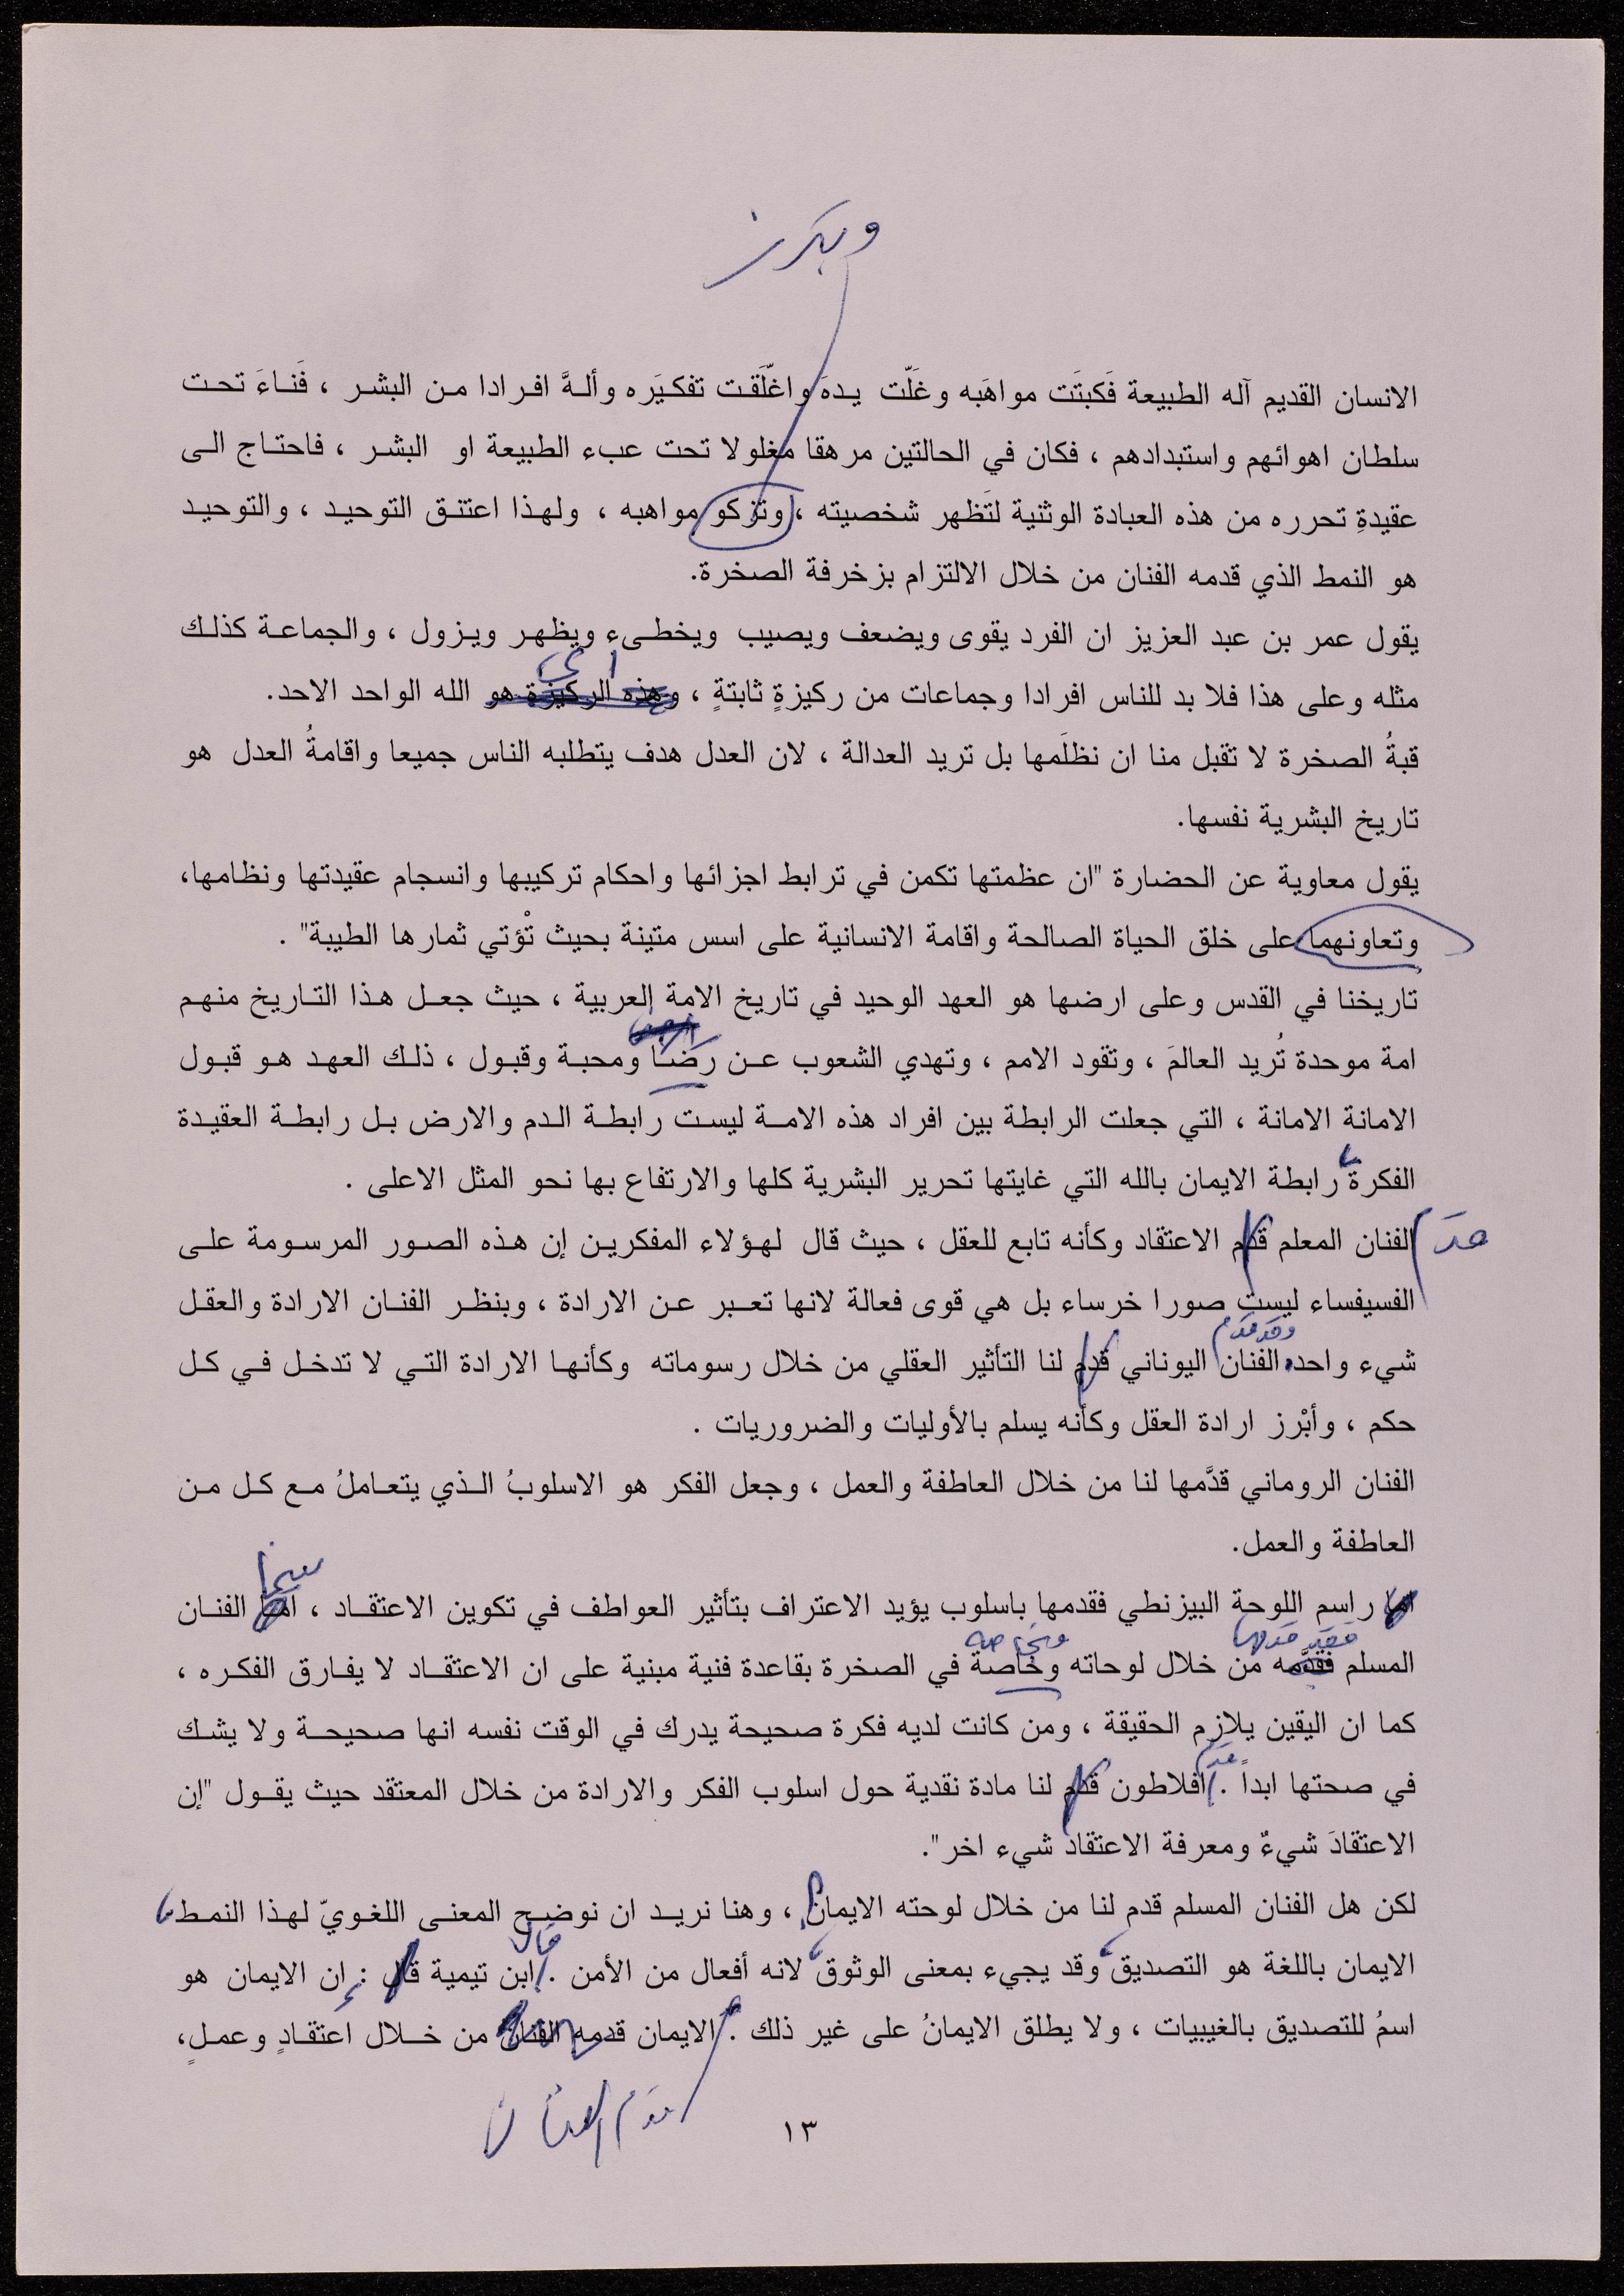 الانسان القديم آله الطبيعة فَكبتَت مواهَبه وغَلّت يدهَ واغّلَقت تفكيَره وألهَّ افرادا من البشر ، فَناءَ تحت
سلطان اهوائهم واستبدادهم ، فكان في الحالتين مرهقا مغلولا تحت عبء الطبيعة او البشر ، فاحتاج الى
عقيدةِ تحرره من هذه العبادة الوثنية لتَظهر شخصيته ، وتزكو مواهبه ، ولهذا اعتنق التوحيد ، والتوحيد
هو النمط الذي قدمه الفنان من خلال الالتزام بزخرفة الصخرة.
يقول عمر بن عبد العزيز ان الفرد يقوى ويضعف ويصيب ويخطىء ويظهر ويزول ، والجماعة كذلك
مثله وعلى هذا فلا بد للناس افرادا وجماعات من ركيزةٍ ثابتةٍ ، وهذه الركيزة هو الله الواحد الاحد.
قبةُ الصخرة لا تقبل منا ان نظلَمها بل تريد العدالة ، لان العدل هدف يتطلبه الناس جميعا واقامةُ العدل هو
تاريخ البشرية نفسها.
يقول معاوية عن الحضارة "ان عظمتها تكمن في ترابط اجزائها واحكام تركيبها وانسجام عقيدتها ونظامها،
وتعاونهما على خلق الحياة الصالحة واقامة الانسانية على اسس متينة بحيث تْؤتي ثمارها الطيبة" .
تاريخنا في القدس وعلى ارضها هو العهد الوحيد في تاريخ الامة العربية ، حيث جعل هذا التاريخ منهم
امة موحدة تُريد العالمَ ، وتقود الامم ، وتهدي الشعوب عن رضا ومحبة وقبول ، ذلك العهد هو قبول
الامانة الامانة ، التي جعلت الرابطة بين افراد هذه الامة ليست رابطة الدم والارض بل رابطة العقيدة
الفكرة رابطة الايمان بالله التي غايتها تحرير البشرية كلها والارتفاع بها نحو المثل الاعلى .
الفنان المعلم قدم الاعتقاد وكأنه تابع للعقل ، حيث قال لهؤلاء المفكرين إن هذه الصور المرسومة على
الفسيفساء ليست صورا خرساء بل هي قوى فعالة لانها تعبر عن الارادة ، وبنظر الفنان الارادة والعقل
وقد قدم
شيء واحد. الفنان اليوناني قدم لنا التأثير العقلي من خلال رسوماته وكأنها الارادة التي لا تدخل في كل
حكم ، وأبْرز ارادة العقل وكأنه يسلم بالأوليات والضروريات .
الفنان الروماني قدَّمها لنا من خلال العاطفة والعمل ، وجعل الفكر هو الاسلوبُ الذي يتعاملُ مع كل من
العاطفة والعمل.
بينما
اما راسم اللوحة البيزنطي فقدمها باسلوب يؤيد الاعتراف بتأثير العواطف في تكوين الاعتقاد ، اما الفنان
فقد قدمها وبخاصة
المسلم فقدَّمه من خلال لوحاته وخاصة في الصخرة بقاعدة فنية مبنية على ان الاعتقاد لا يفارق الفكره ،
كما ان اليقين يلازم الحقيقة ، ومن كانت لديه فكرة صحيحة يدرك في الوقت نفسه انها صحيحة ولا يشك
قدم
في صحتها ابداً . افلاطون قدم لنا مادة نقدية حول اسلوب الفكر والارادة من خلال المعتقد حيث يقول "إن
الاعتقادَ شيءٌ ومعرفة الاعتقاد شيء اخر".
لكن هل الفنان المسلم قدم لنا من خلال لوحته الايمان ، وهنا نريد ان نوضح المعنى اللغويّ لهذا النمط
قال
الايمان باللغة هو التصديق وقد يجيء بمعنى الوثوق لانه أفعال من الأمن . ابن تيمية قال : إن الايمان هو
اسمُ للتصديق بالغيبيات ، ولا يطلق الايمانُ على غير ذلك . الايمان قدمه الفنان من خلال اعتقادٍ وعملٍ،
قدم الفنان
١٣